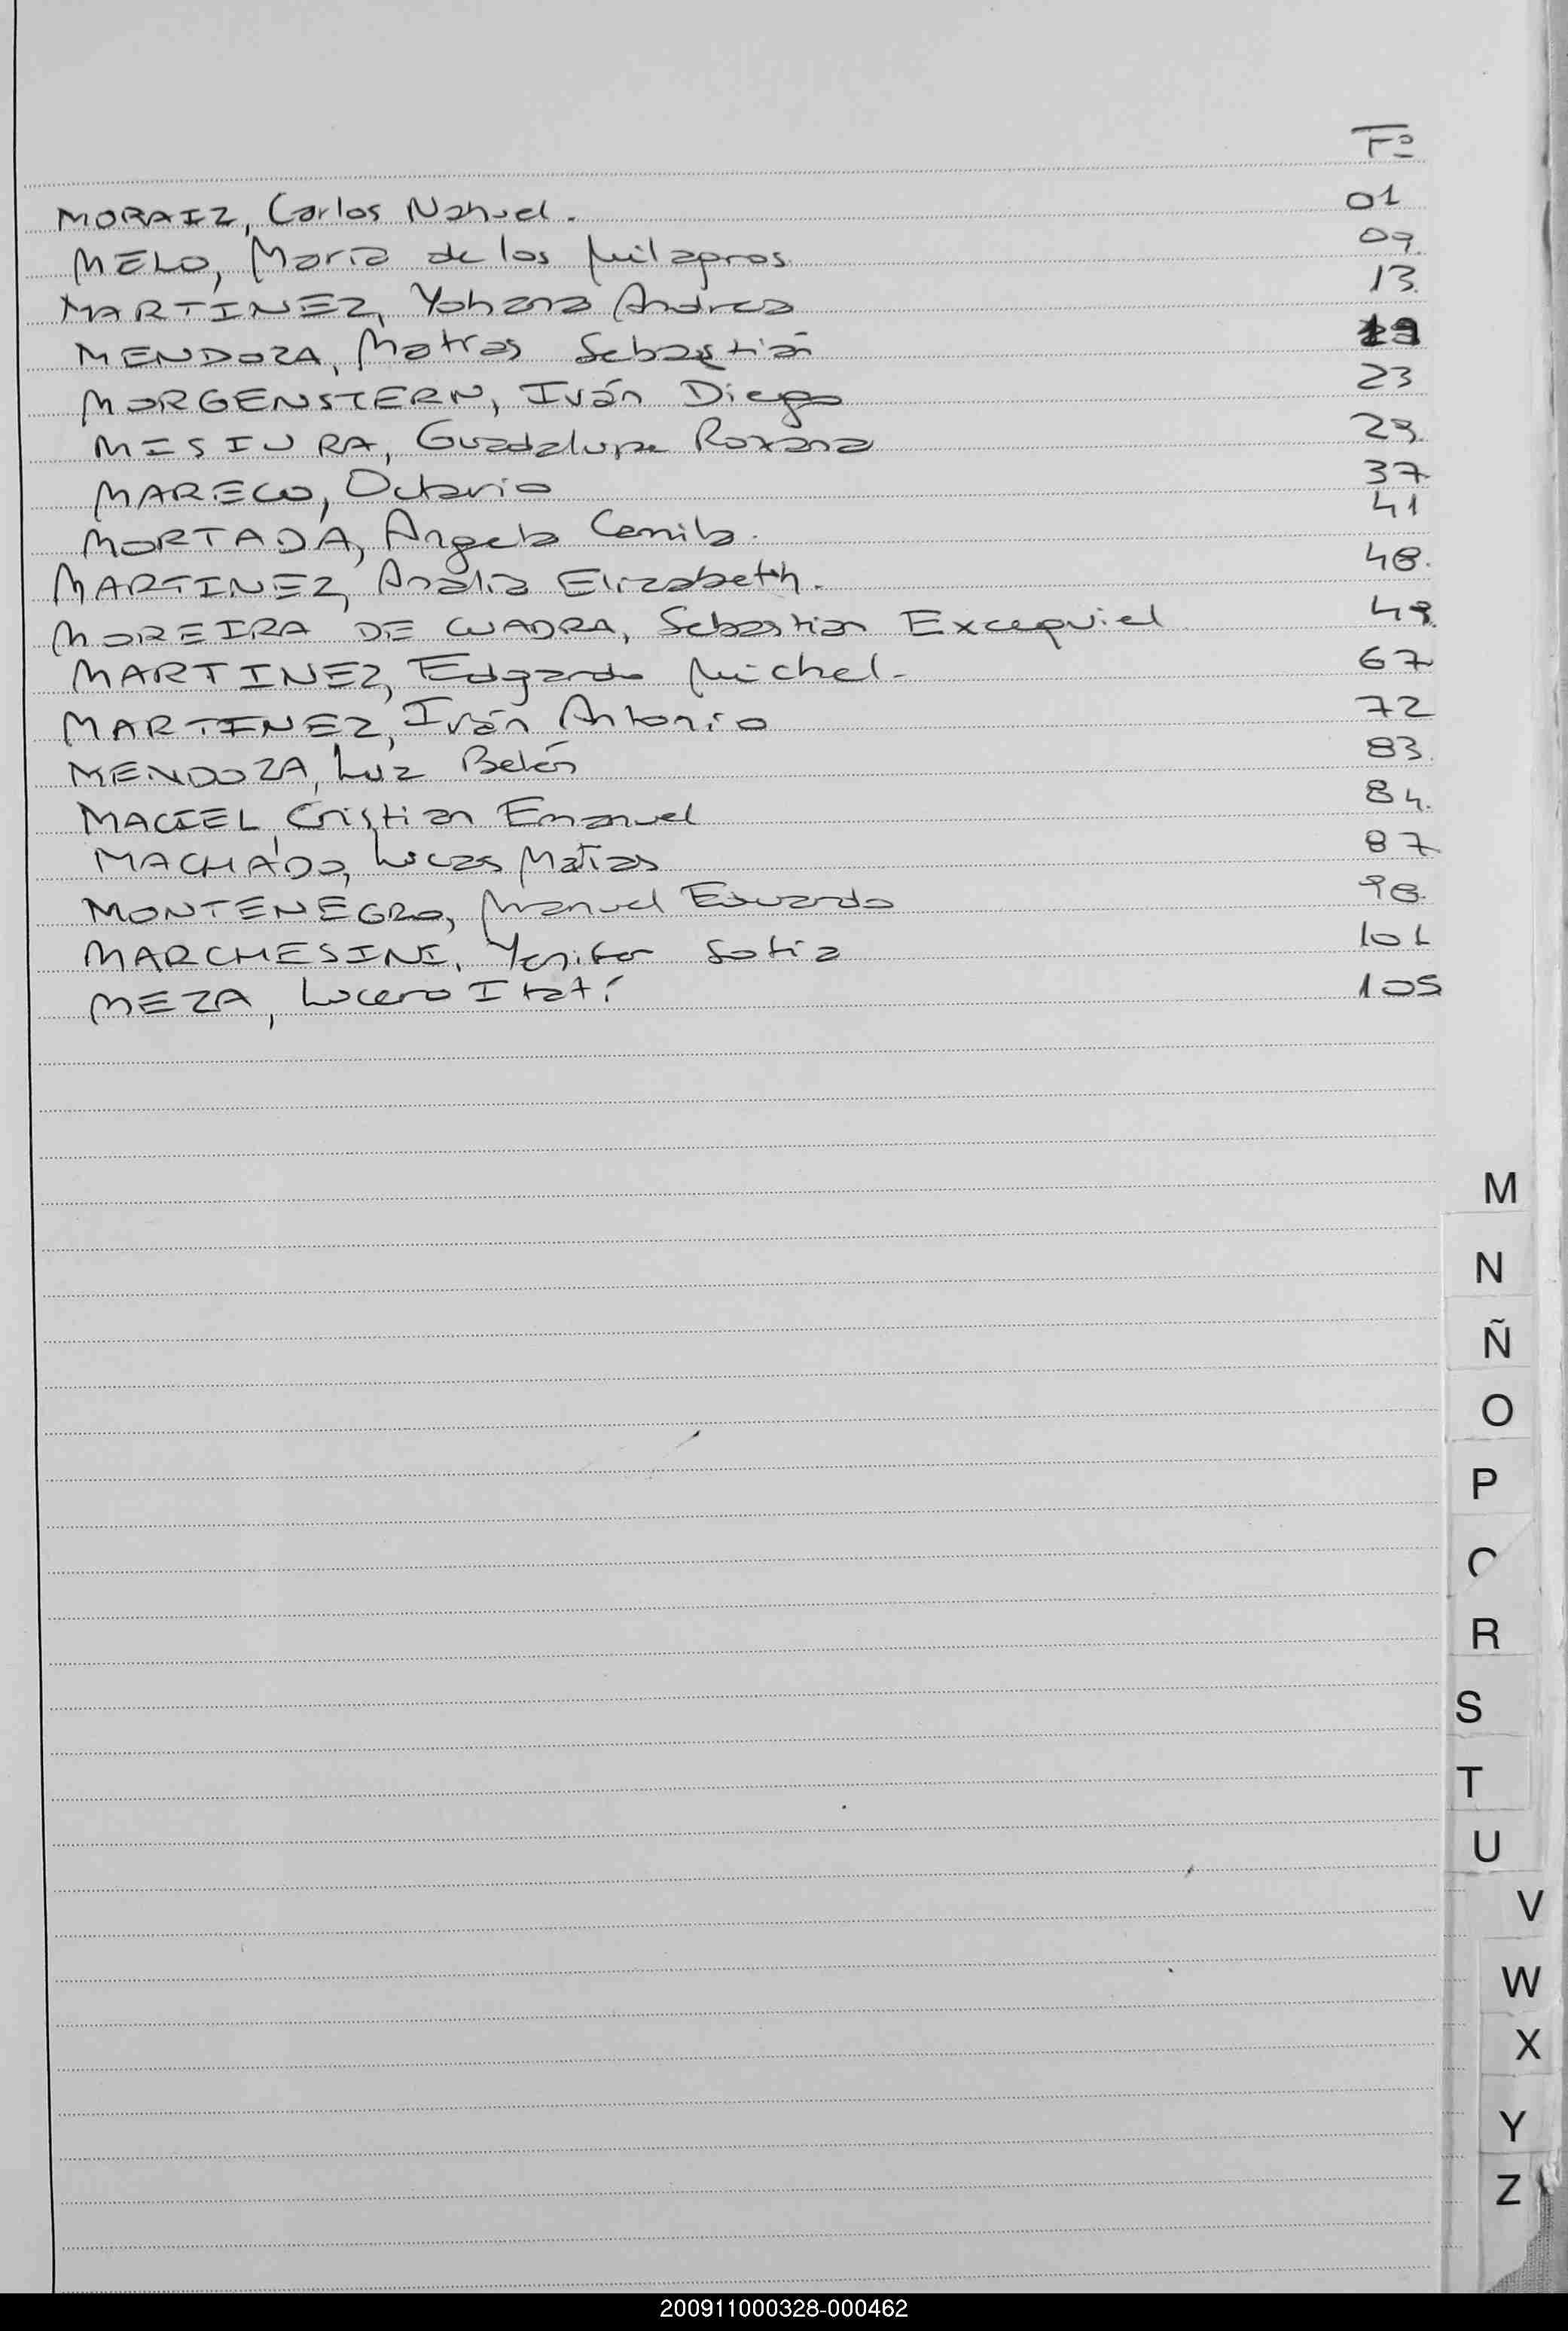 Fº
MORAIZ, Carlos Nahuel. 01
MELO, María de los Milagros 09.
MARTINEZ, Yohana Andrea 13.
MENDOZA, Matías Sebastián 19
MORGENSTERN, Iván Diego 23
MISIURA, Guadalupe Roxana 29.
MARECO, Octavio 37
MORTADA, Angela Camila. 41
MARTINEZ, Analía Elizabeth. 48.
MOREIRA DE CUADRA, Sebastian Excequiel 49.
MARTINEZ, Edgardo Michel. 67
MARTINEZ, Iván Antonio 72
MENDOZA, Luz Belén 83.
MACIEL, Cristian Emanuel 84.
MACHADO, Lucas Matías 87
MONTENEGRO, Manuel Eduardo 98.
MARCHESINI, Yenifer Sofia 101
MEZA, Lucero Itatí 105
M
N
Ñ
O
P
R
S
T
U
V
W
X
Y
Z
200911000328-000462